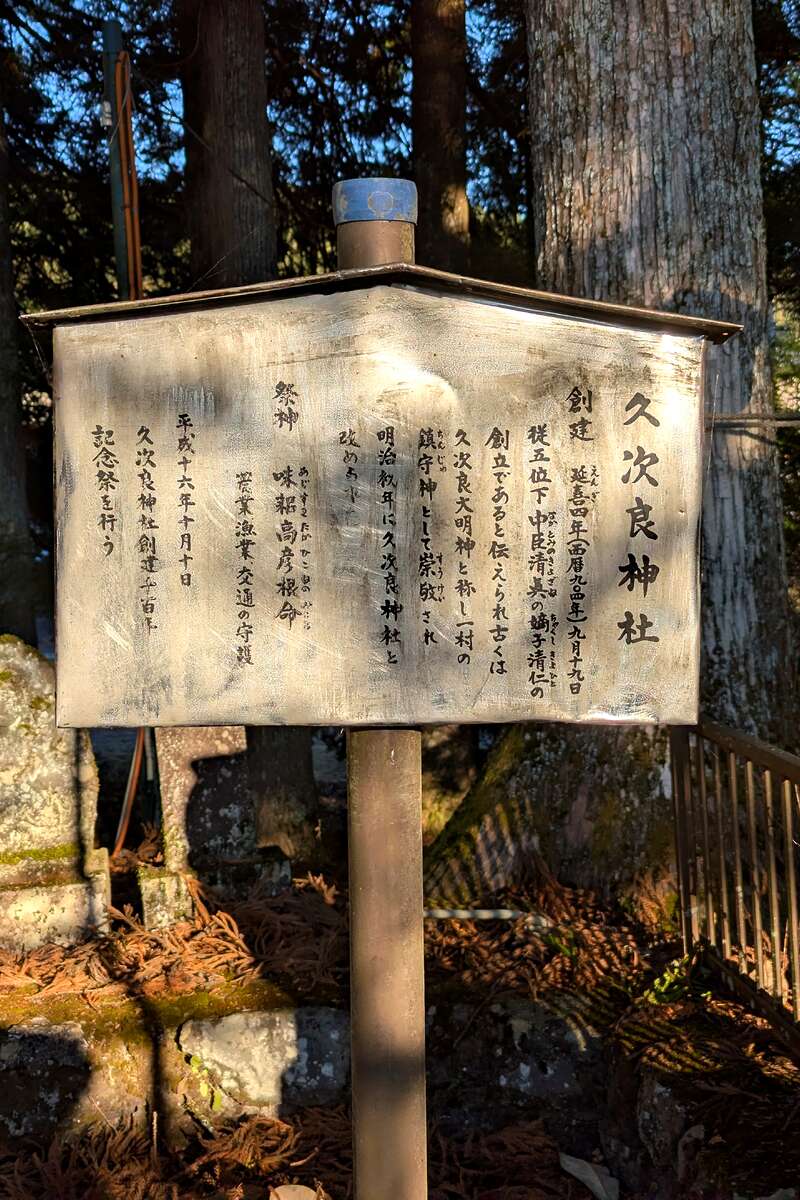 久次良神社
創建 延喜四年(西暦九〇四年)九月十九日
従五位下中臣清真の嫡子清仁の
創立であると伝えられ古くは
久次良大明神と称し一村の
鎮守神として崇敬され
明治初年に久次良神社と
改めあ
祭神 味耜高彦根命
農業漁業交通の守護
平成十六年十月十日
久次良神社創建千百年
記念祭を行う